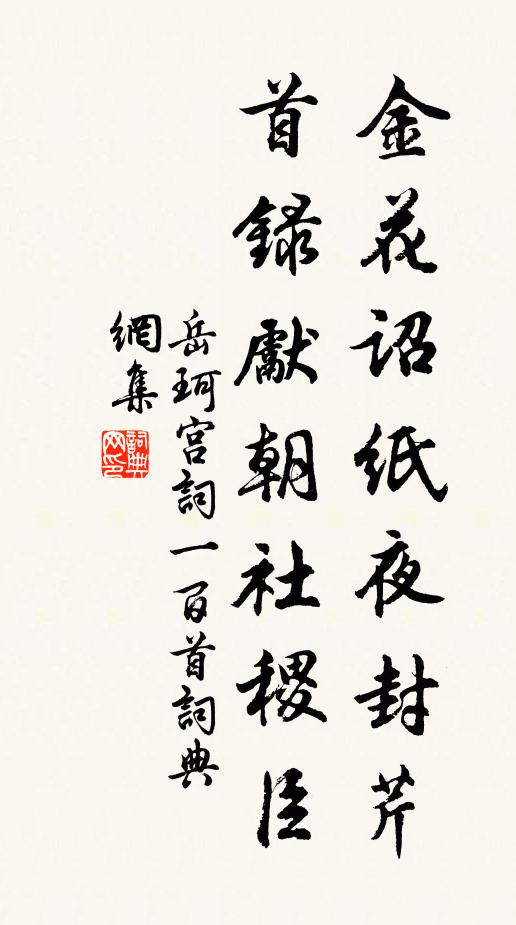 金花詔紙夜封芹
首録獻朝社稷臣
岳珂宮詞一百首詞典
網集
詞典
网印